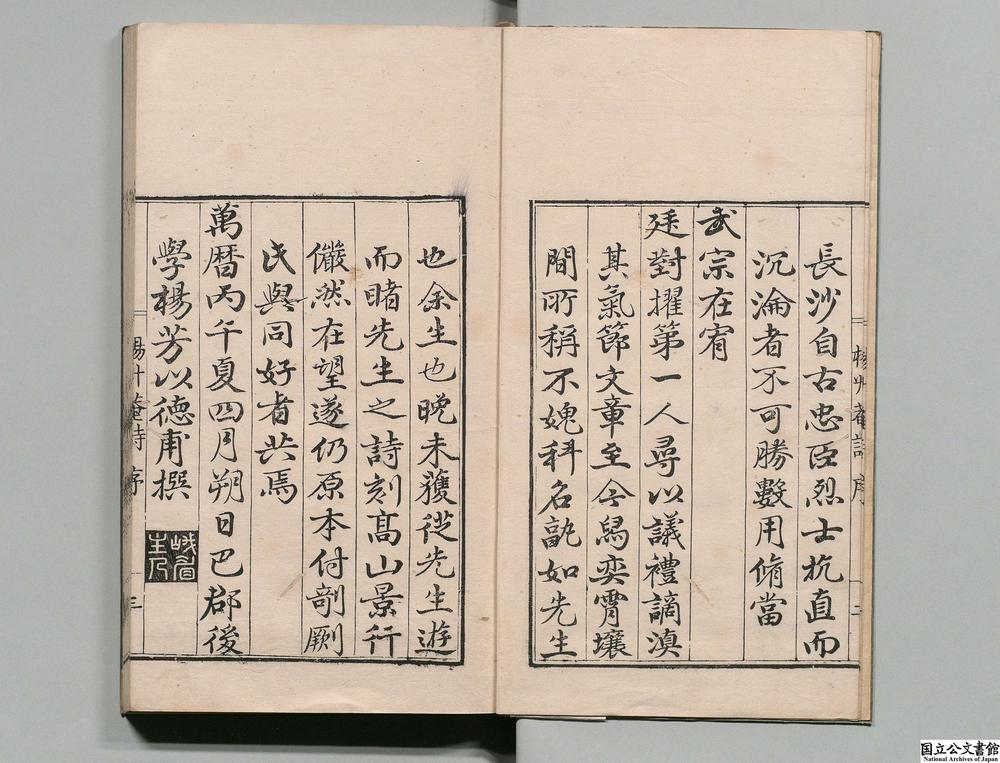 楊升菴詩序
二
長沙自古忠臣烈士抗直而
沉淪者不可勝數用脩當
武宗在宥
廷對擢第一人尋以議禮謫滇
其氣節文章至今舄奕霄壤
間所稱不媿科名孰如先生
也余生也晚未獲從先生遊
而睹先生之詩刻高山景行
儼然在望遂仍原本付剞劂
氏與同好者共焉
萬曆丙午夏四月朔日巴郡後
學楊芳以德甫撰
峨眉
主人
楊升菴詩序
三
国立公文書館
National Archives of Japan